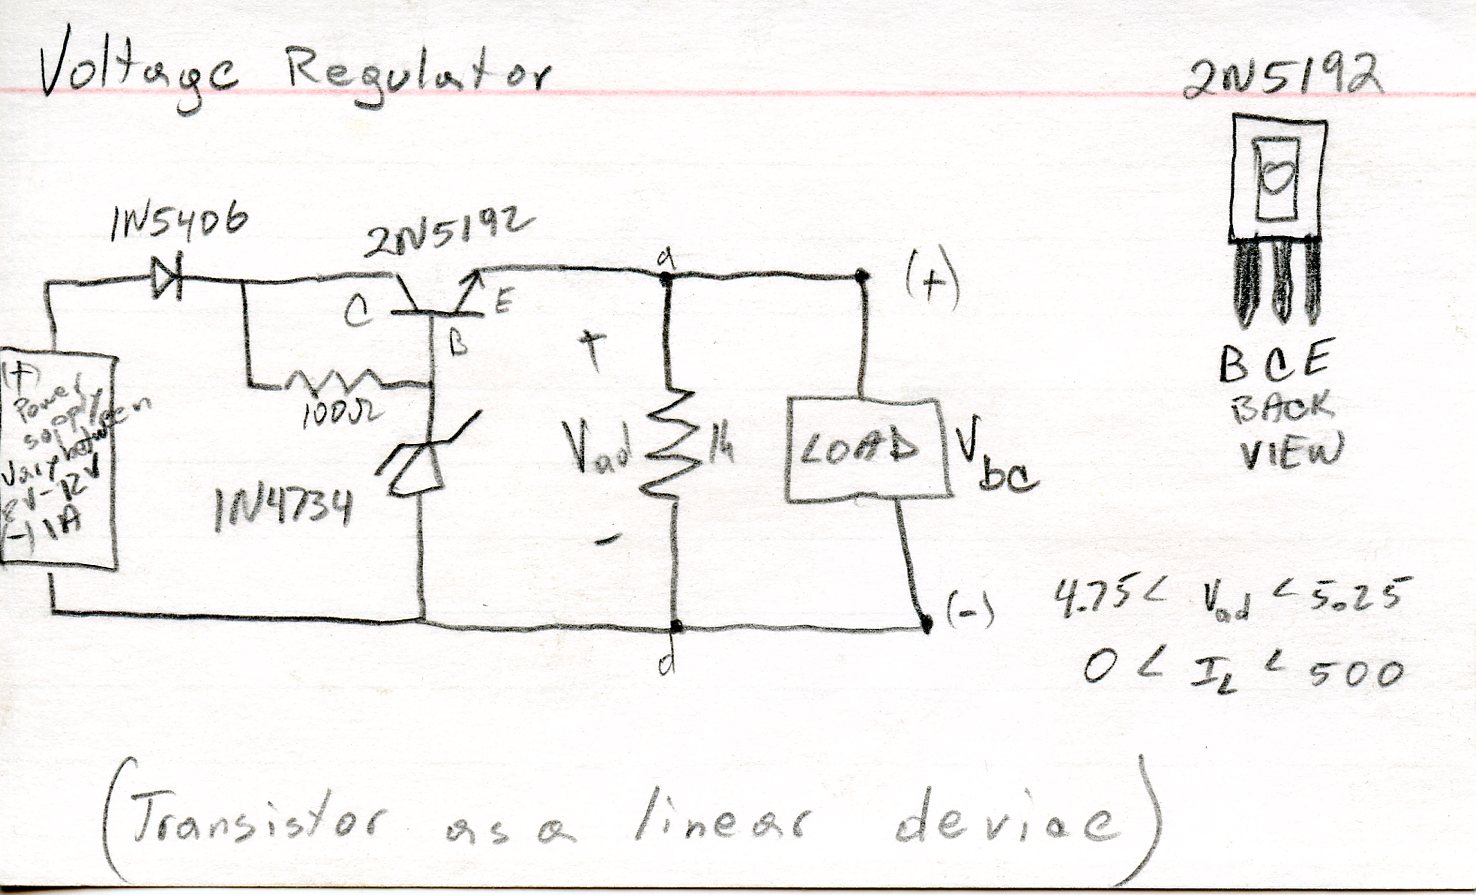 Voltage Regulator
2N5192
1N5406
2N5192
C
B
E
a
(+)
+
100Ω
1N4734
Vad
1k
-
LOAD
Vbc
(+)
Power
supply
Vary between
8V-12V
-) 1A
B C E
BACK
VIEW
d
(-)
4.75 < Vad < 5.25
0 < IL < 500
(Transistor as a linear device)